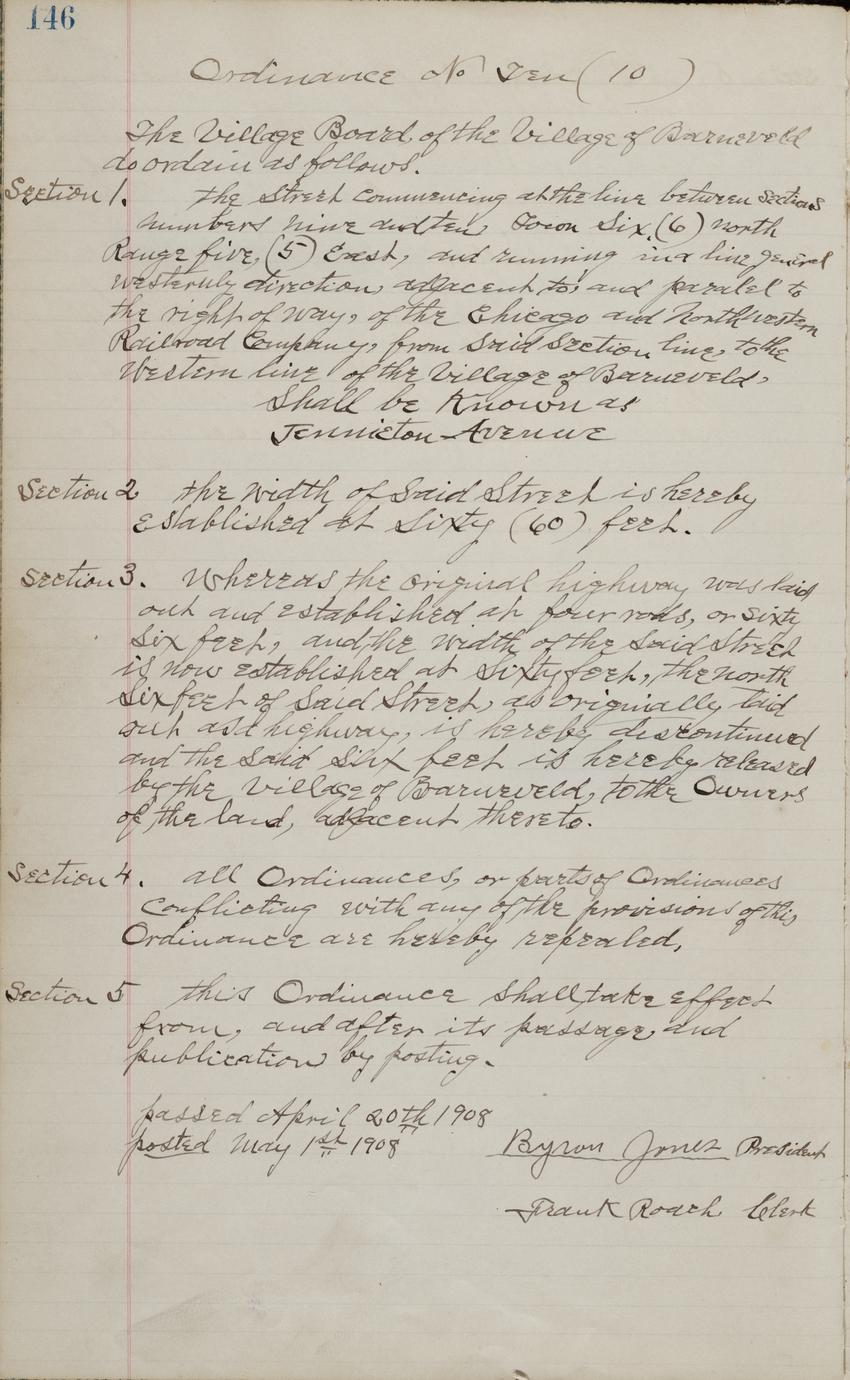 146
Ordinance No Ten (10)
The Village Board of the Village of Barneveld
do ordain as follows.
Section 1. the Street commencing at the line between Sections
numbers nine and ten, Town Six, (6) north
Range five, (5) East, and running in a line general
westernly direction, adjacent to, and paralel to
the right of way, of the Chicago and Northwestern
Railroad Company, from Said Section line, to the
Western line of the Village of Barneveld,
Shall be Known as
Jennieton Avenue
Section 2 the width of Said Street is hereby
Established at Sixty (60) feet.
Section 3. Whereas the original highway was laid
out and established at four rods, or Sixty
Six feet, and the width of the Said Street
is now established at Sixty feet, the north
Six feet of Said Street, as originally laid
out as a highway, is hereby discontinued
and the Said Six feet is hereby released
by the Village of Barneveld, to the Owners
of the land, adjacent thereto.
Section 4. all Ordinances, or parts of Ordinances
Conflicting with any of the provisions of this
Ordinance are hereby repealed,
Section 5 this Ordinance Shall take Effect
from, and after its passage, and
publication by posting.
passed April 20th 1908
posted May 1st 1908 Byron Jones President
Frank Roach Clerk